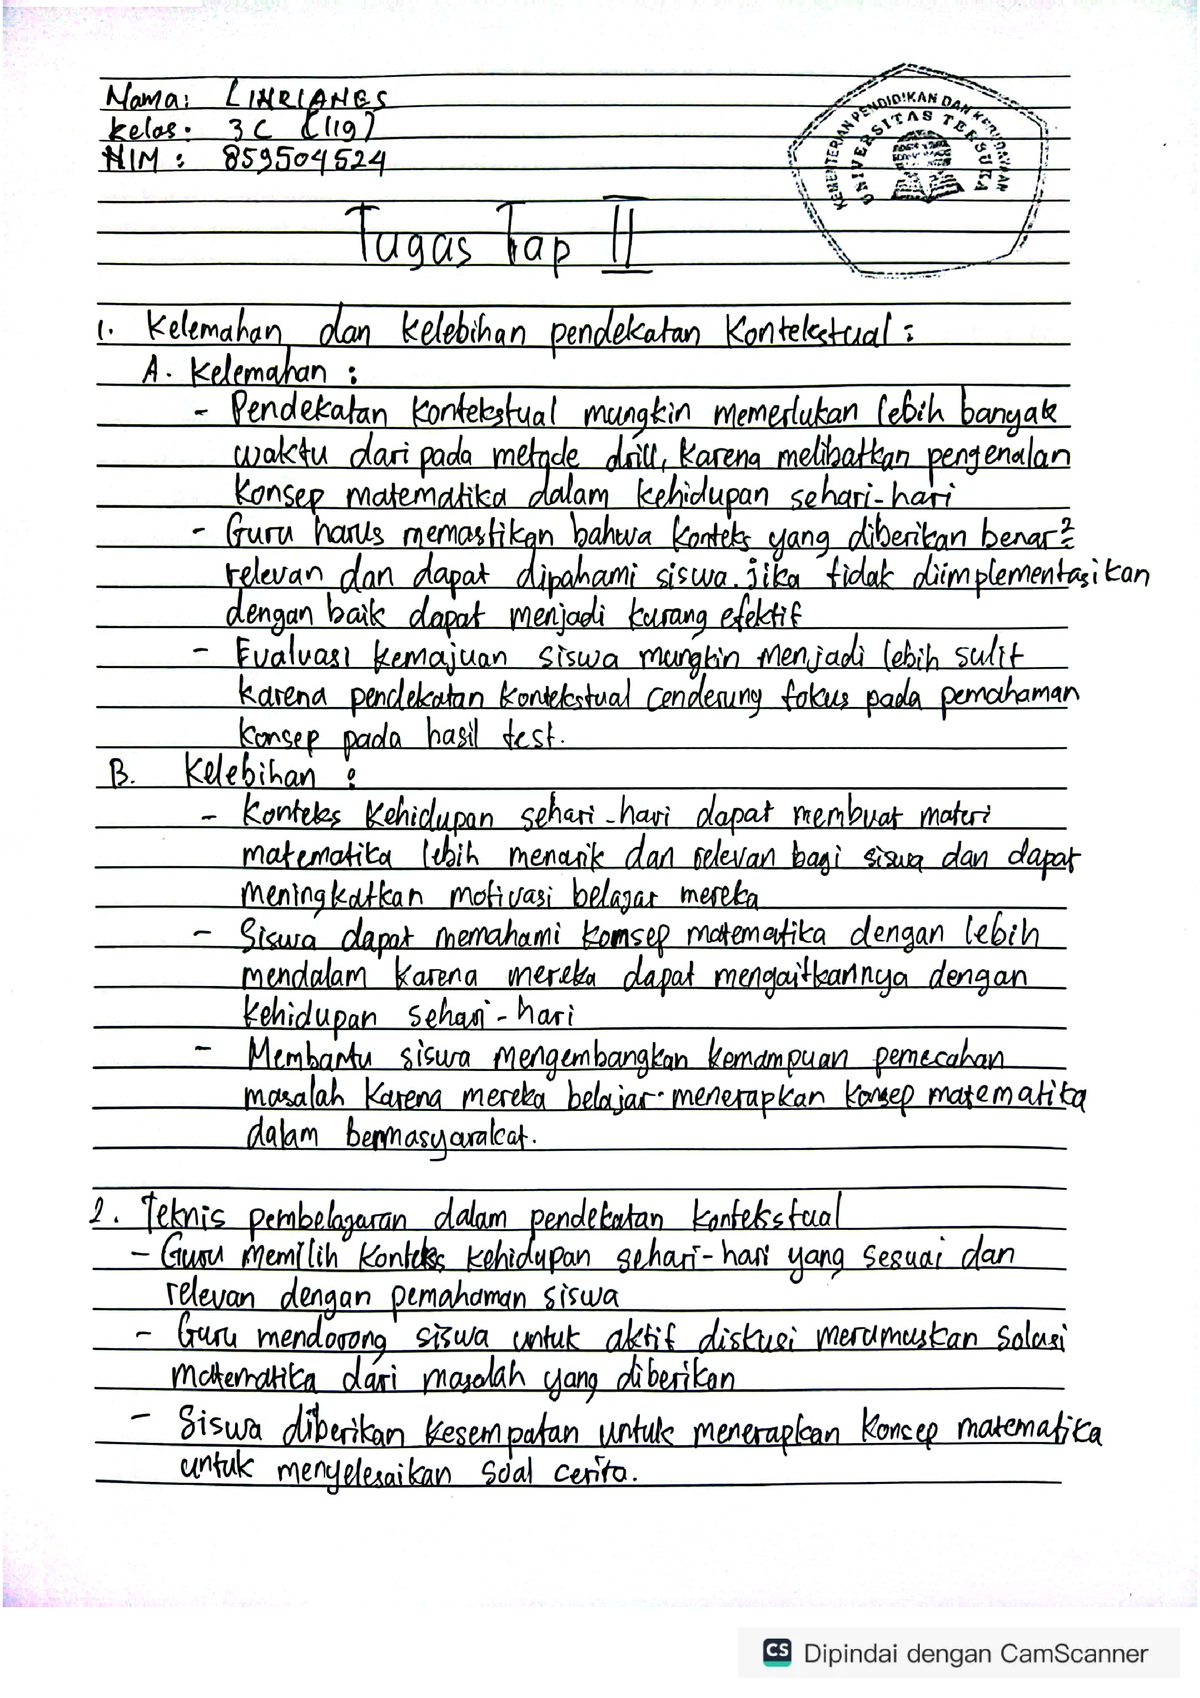 Nama: LINRIANES
Kelas: 3C (119)
NIM: 859504524
KEMENTERIAN PENDIDIKAN DAN KEBUDAYAAN
UNIVERSITAS TERBUKA
Tugas Tap II
1. Kelemahan dan kelebihan pendekatan Kontekstual:
A. Kelemahan:
- Pendekatan Kontekstual mungkin memerlukan lebih banyak
waktu dari pada metode drill, karena melibatkan pengenalan
Konsep matematika dalam kehidupan sehari-hari
- Guru harus memastikan bahwa Konteks yang diberikan benar²
relevan dan dapat dipahami siswa. jika tidak diimplementasikan
dengan baik dapat menjadi kurang efektif
- Evaluasi kemajuan siswa mungkin menjadi lebih sulit
karena pendekatan Kontekstual cenderung fokus pada pemahaman
Konsep pada hasil test.
B. Kelebihan:
- Konteks Kehidupan sehari-hari dapat membuat materi
matematika lebih menarik dan relevan bagi siswa dan dapat
meningkatkan motivasi belajar mereka
- Siswa dapat memahami komsep matematika dengan lebih
mendalam karena mereka dapat mengaitkannya dengan
Kehidupan sehari-hari
- Membantu siswa mengembangkan kemampuan pemecahan
masalah Karena mereka belajar menerapkan konsep matematika
dalam bermasyarakat.
2. Teknis pembelajaran dalam pendekatan kontekstual
- Guru memilih Konteks kehidupan sehari-hari yang sesuai dan
relevan dengan pemahaman siswa
- Guru mendorong siswa untuk aktif diskusi merumuskan solusi
matematika dari masalah yang diberikan
- Siswa diberikan kesempatan untuk menerapkan Koncep matematika
untuk menyelesaikan soal cerita.
CS Dipindai dengan CamScanner